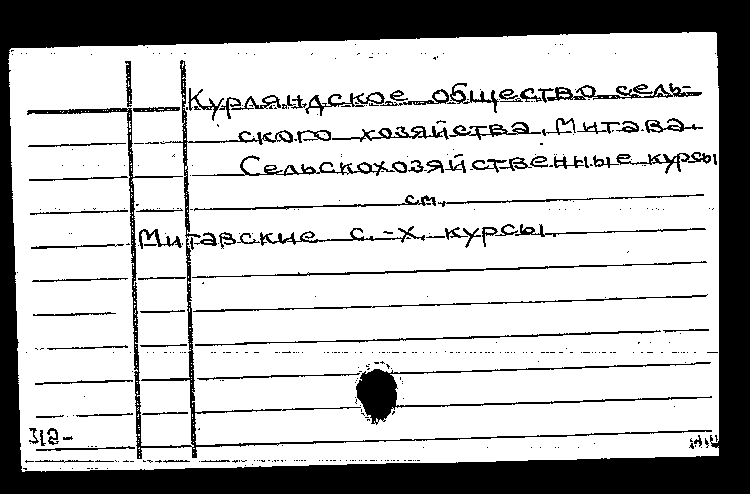 Курляндское общество сель-
ского хозяйства, Митава.
Сельскохозяйственные курсы
см.
Митавские с.-х. курсы.